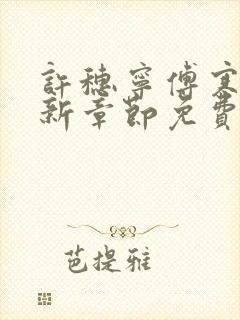 許穗寧傅寒
新章節免費
芭提雅